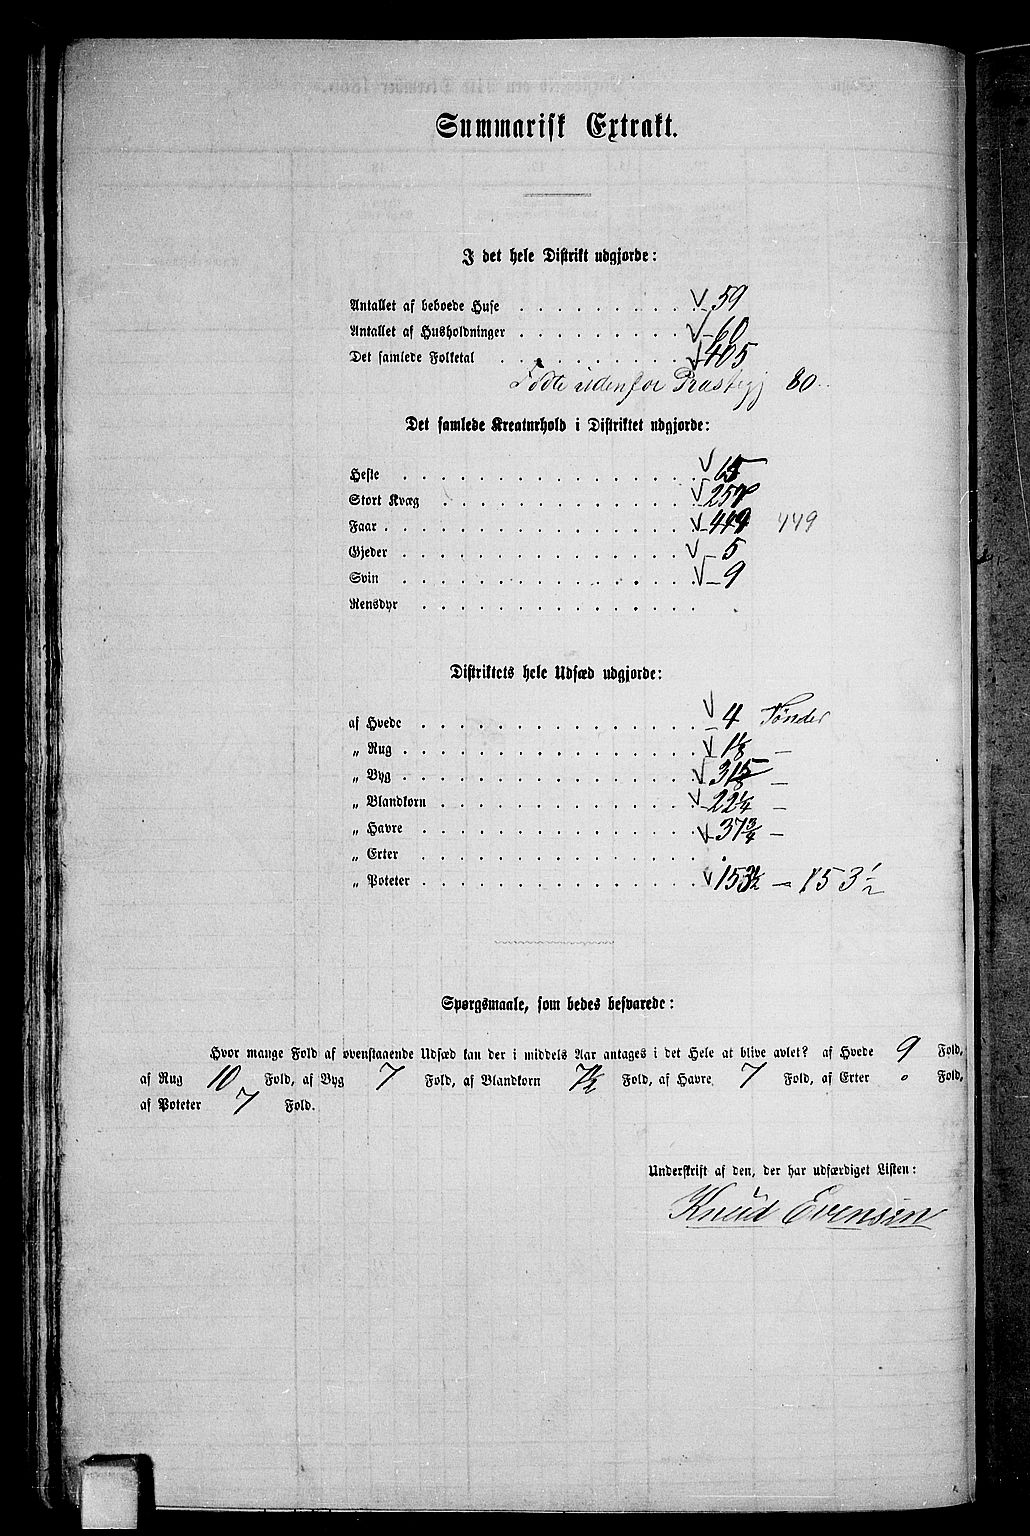 Summarisk Extrakt.
I det hele Distrikt udgjorde:
Antallet af beboede Huse . . . . . . . . √ 59
Antallet af Husholdninger . . . . . . . . √ 60
Det samlede Folketal . . . . . . . . √ 405
Fødte udenfor Præstegj 80
Det samlede Kreaturhold i Distriktet udgjorde:
Heste . . . . . . . . . . . . √
Stort Kvæg . . . . . . . . . . √
Faar . . . . . . . . . . . . √ 449 449
Gjeder . . . . . . . . . . . . √ 5
Svin . . . . . . . . . . . . √ 9
Rensdyr . . . . . . . . . . .
Distriktets hele Udsæd udgjorde:
af Hvede . . . . . . . . . . . √ 4 Tønder
„ Rug . . . . . . . . . . . . √ 1⅛ —
„ Byg . . . . . . . . . . . . √ —
„ Blandkorn . . . . . . . . . . √ 22¼ —
„ Havre . . . . . . . . . . . √ 37¾ —
„ Erter . . . . . . . . . . .
„ Poteter . . . . . . . . . . . √ 153½ — 153½
Spørgsmaale, som bedes besvarede:
Hvor mange Fold af ovenstaaende Udsæd kan der i middels Aar antages i det Hele at blive avlet? af Hvede 9 Fold,
af Rug 10 Fold, af Byg 7 Fold, af Blandkorn 7½ Fold, af Havre 7 Fold, af Erter 0 Fold,
af Poteter 7 Fold.
Underskrift af den, der har udfærdiget Listen:
Knud Evensen